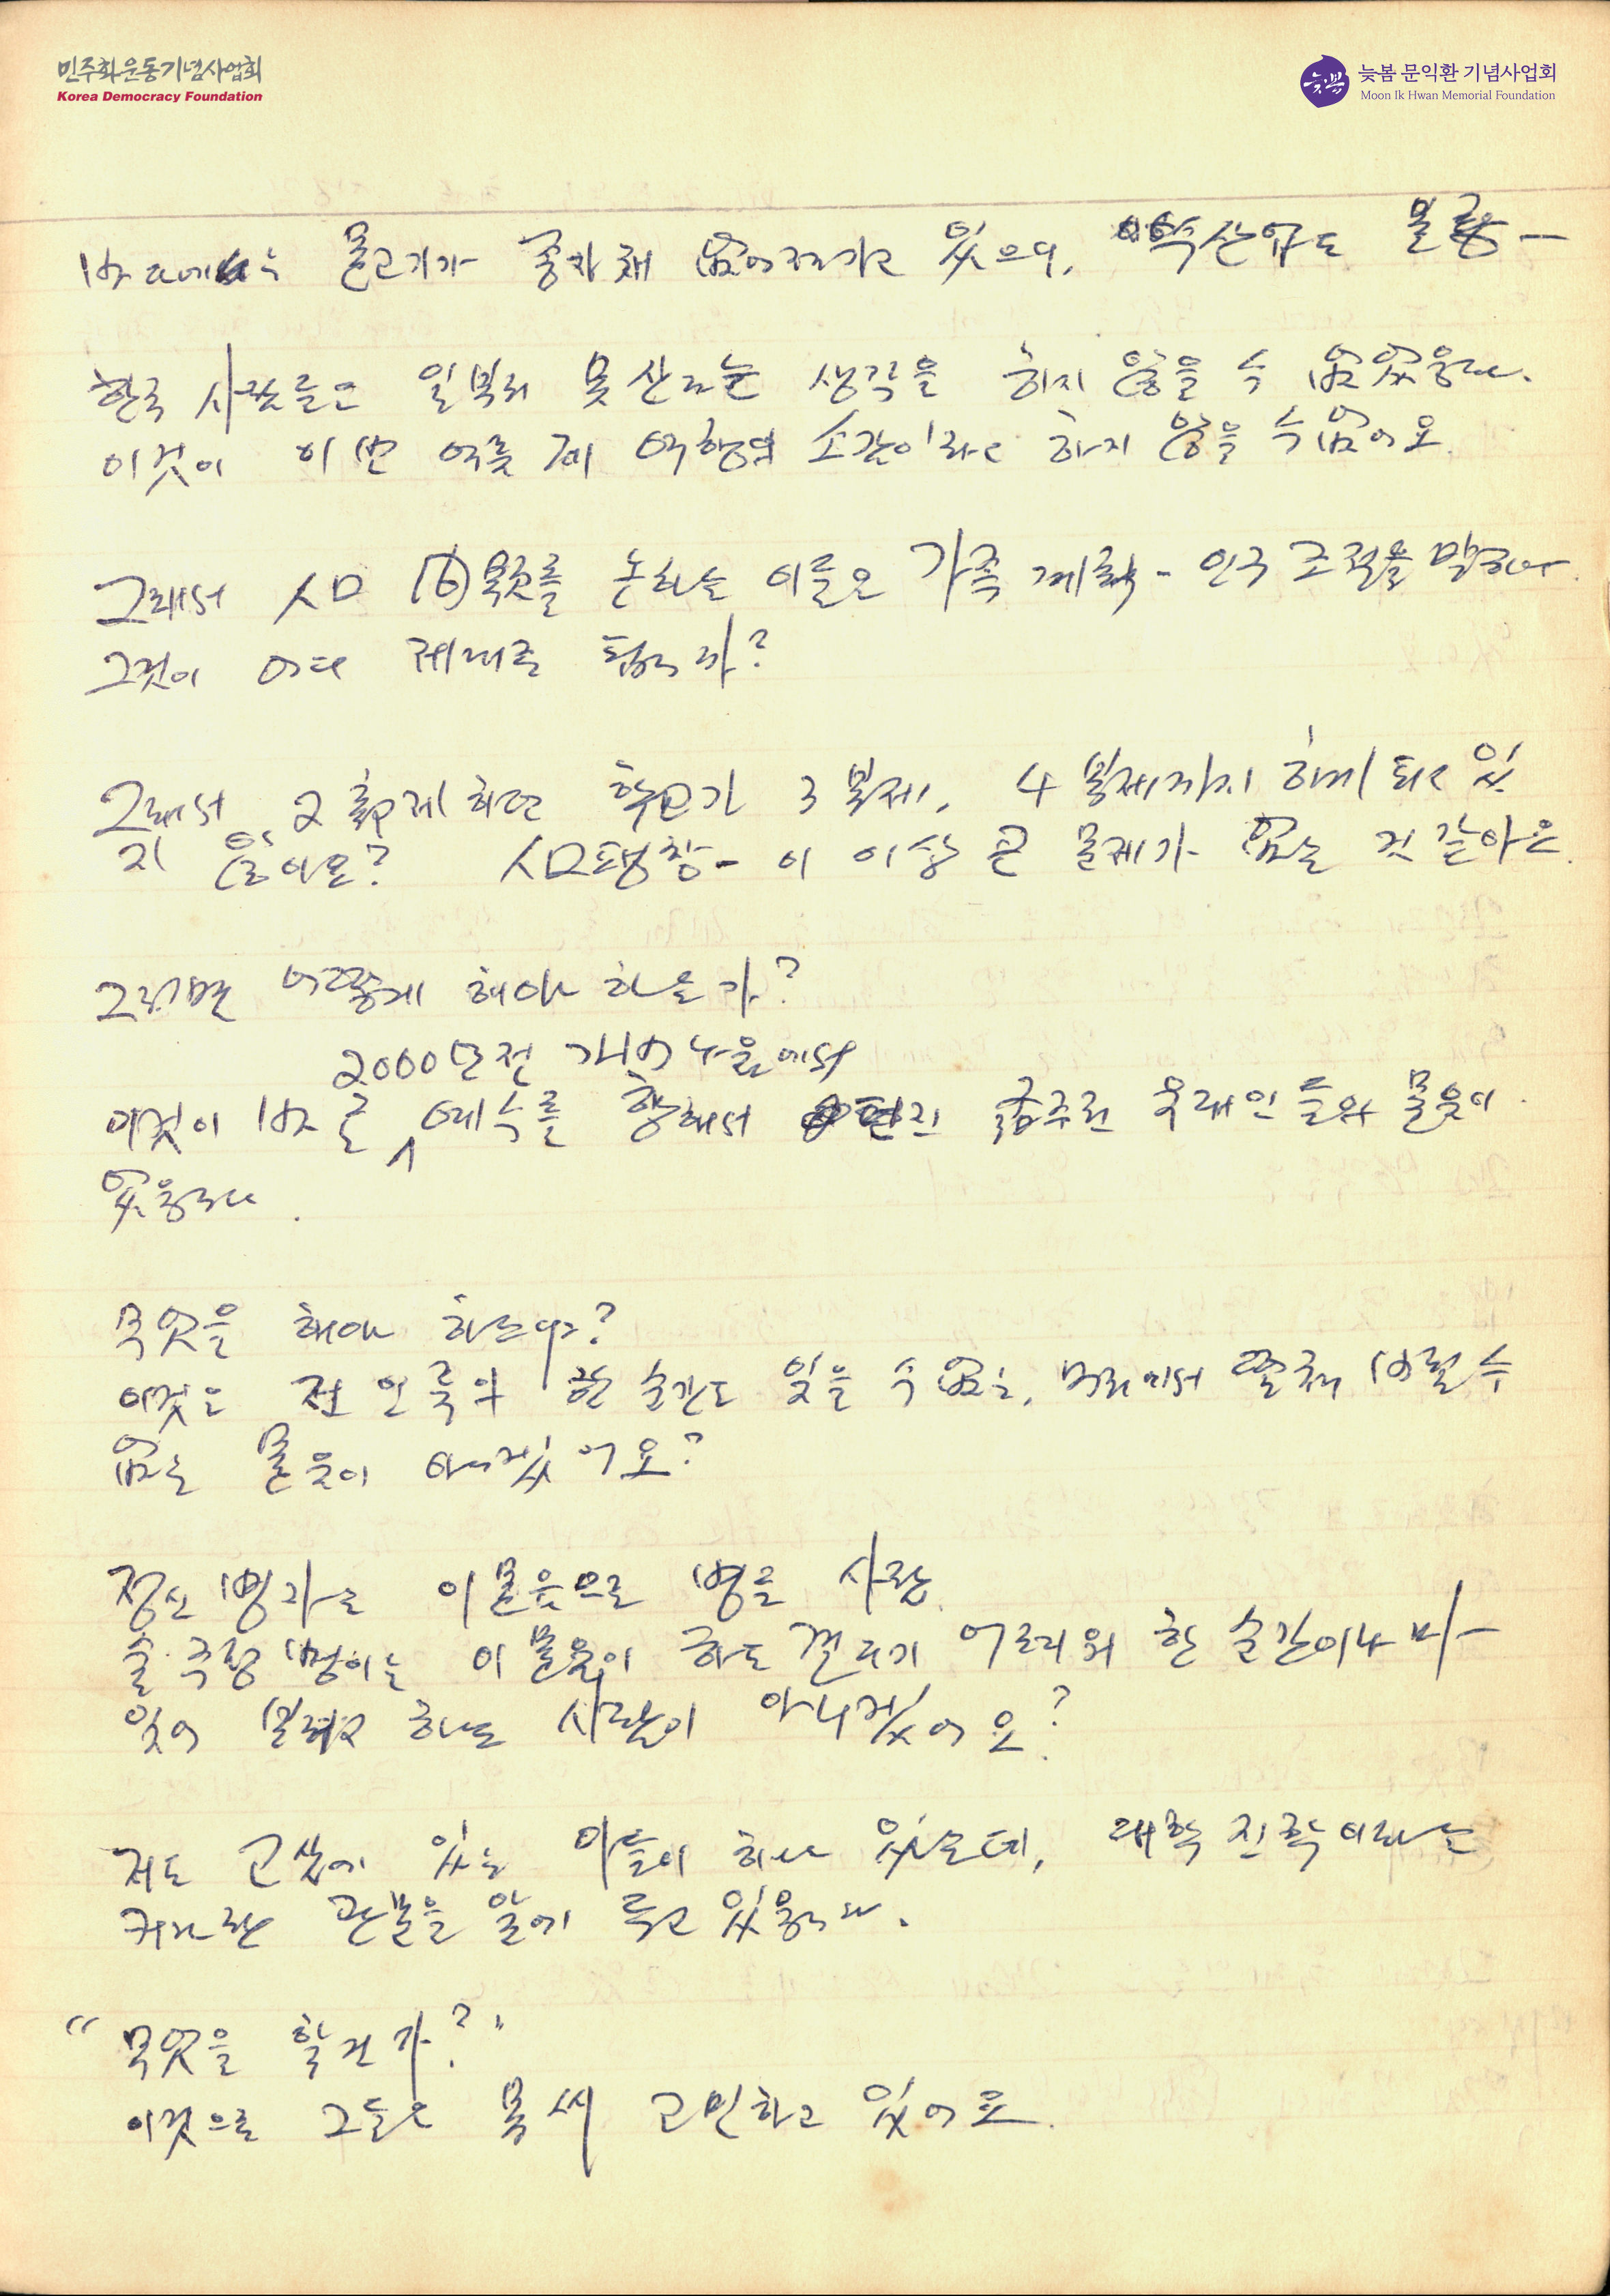 민주화운동기념사업회
Korea Democracy Foundation
늦봄 문익환 기념사업회
Moon Ik Hwan Memorial Foundation
바다에는 물고기가 종자채 없어져가고 있으며, 산업도 불황—
한국 사람들은 일부러 못산다는 생각을 하지 않을 수 없었읍니다.
이것이 이번 여름 제 여행의 소감이라고 하지 않을 수 없어요.
그래서 人口 문제를 논하는 이들은 가족 계획 - 인구 조절을 말하나
그것이 어디 제대로 됩니까?
그래서 2부제 하던 학교가 3부제, 4부제까지 하게 되고 있
지 않아요? 人口팽창 - 이 이상 큰 문제가 없는 것 같아요.
그러면 어떻게 해야 하는가?
2000년전 가버나움에서
이것이 바로 예수를 향해서 던진 굶주린 유대인들의 물음이
었읍니다.
무엇을 해야 하는가?
이것은 전 인류의 한 순간도 잊을 수 없는, 머리에서 떨쳐 버릴 수
없는 물음이 아니겠어요?
정신병자는 이 물음으로 병든 사람
술 주정뱅이는 이 물음이 하도 견디기 어려워 한 순간이나마—
잊어 보려고 하는 사람이 아니겠어요?
저도 고삼에 있는 아들이 하나 있는데, 대학 진학이라는
커다란 관문을 앞에 두고 있읍니다.
"무엇을 할건가?"
이것으로 그들은 몹씨 고민하고 있어요.